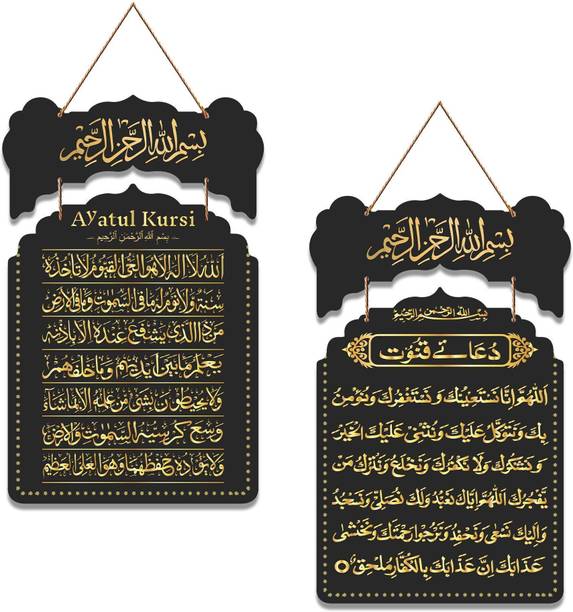 بسم الله الرحمن الرحيم
Ayatul Kursi
بِسْمِ اللَّهِ الرَّحْمٰنِ الرَّحِيمِ
الله لا اله الا هو الحي القيوم لا تاخذه
سنة ولا نوم له ما في السموت وما في الارض
من ذا الذي يشفع عنده الا باذنه
يعلم ما بين ايديهم وما خلفهم
ولا يحيطون بشيء من علمه الا بما شاء
وسع كرسيه السموت والارض
ولا يؤده حفظهما وهو العلي العظيم
بسم الله الرحمن الرحيم
بسم الله الرحمن الرحيم
دُعائے قنُوت
اَللّٰهُمَّ اِنَّا نَسْتَعِيْنُكَ وَ نَسْتَغْفِرُكَ وَنُؤْمِنُ
بِكَ وَنَتَوَكَّلُ عَلَيْكَ وَنُثْنِيْ عَلَيْكَ الْخَيْرَ
وَ نَشْكُرُكَ وَلَا نَكْفُرُكَ وَنَخْلَعُ وَنَتْرُكُ مَنْ
يَّفْجُرُكَ اَللّٰهُمَّ اِيَّاكَ نَعْبُدُ وَلَكَ نُصَلِّيْ وَنَسْجُدُ
وَاِلَيْكَ نَسْعٰى وَنَحْفِدُ وَنَرْجُوْا رَحْمَتَكَ وَنَخْشٰى
عَذَابَكَ اِنَّ عَذَابَكَ بِالْكُفَّارِ مُلْحِقٌ